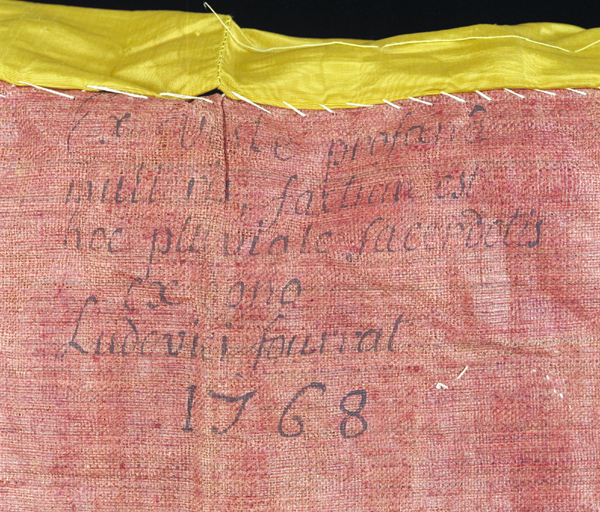 Ex Veste profanâ
mulieris, factum est
hoc pluviale sacerdotis
ex dono
Ludovici fourrat
1768